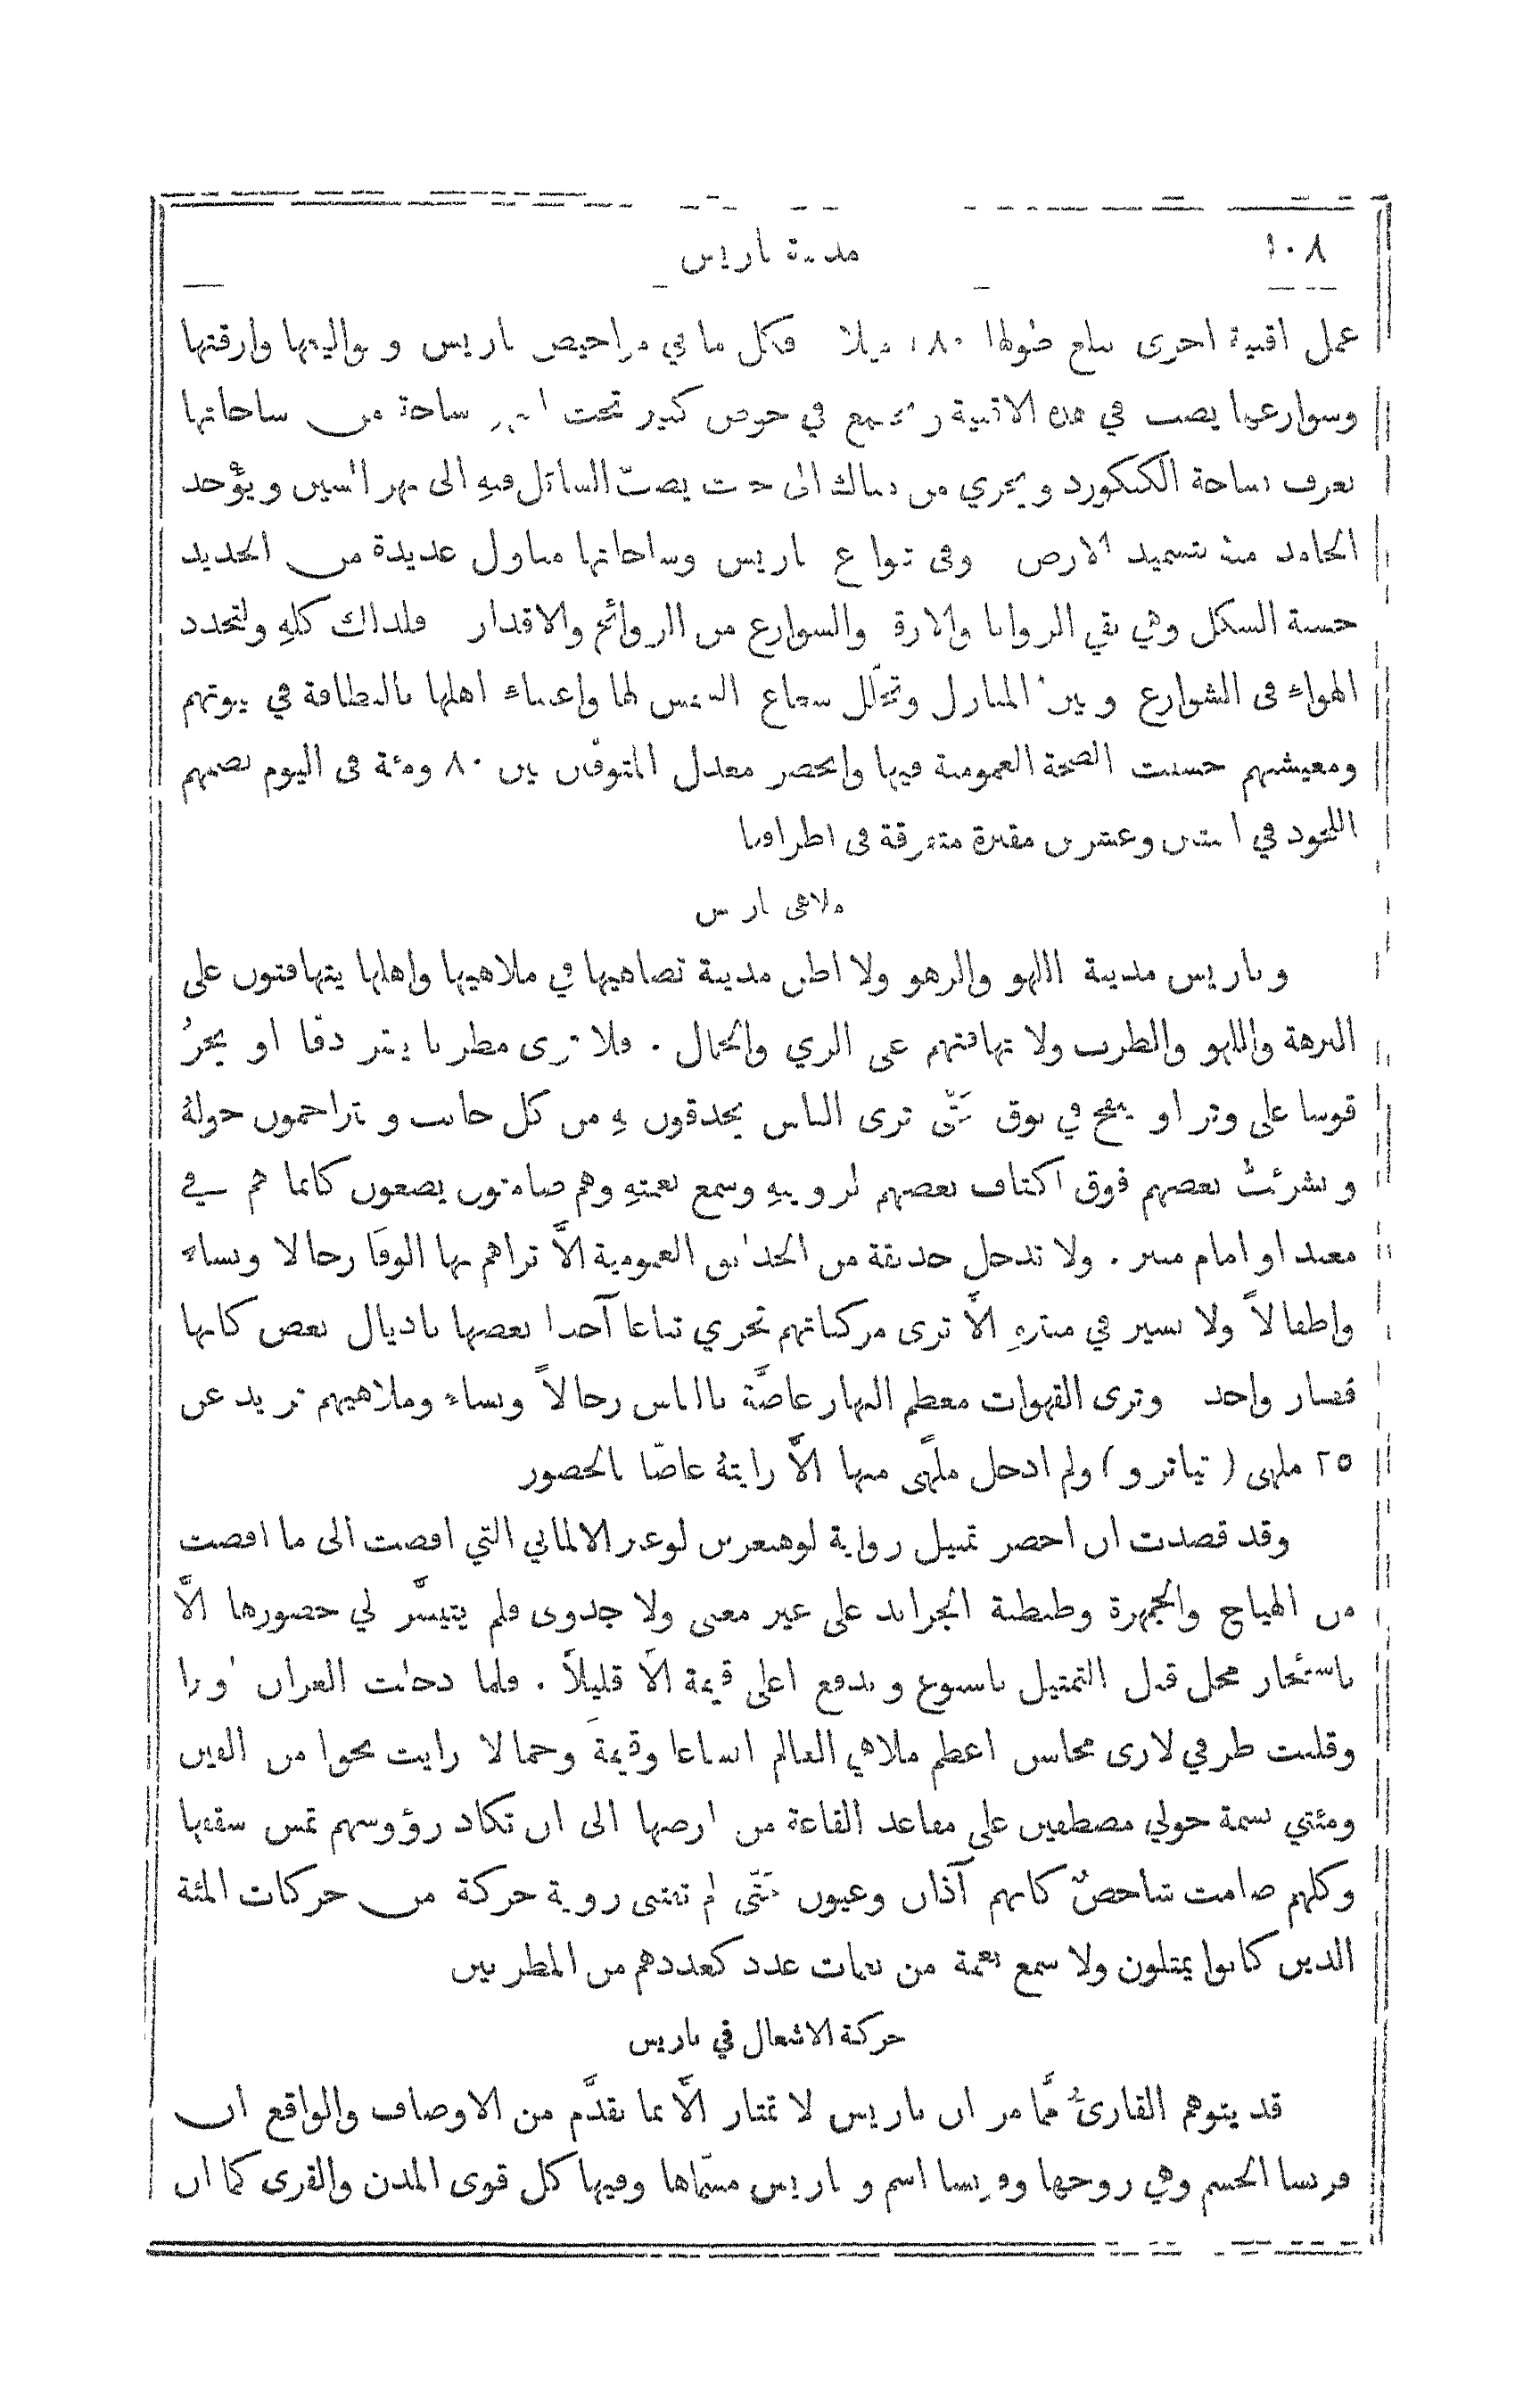 ١٠٨
مدينة باريس
عمل اقنية اخرى يبلغ طولها ١٨٠ ميلا فكل ما في مراحيض باريس و بواليعها وازقتها
وشوارعها يصب في هذه الاقنية ويجتمع في حوض كبير تحت ساحة من ساحاتها
تعرف بساحة الكنكورد ويجري من هناك الى حيث يصبّ السائل منهِ الى نهر السين ويؤخذ
الجامد منهُ لتسميد الارض وفي شوارع باريس وساحاتها مباول عديدة من الحديد
حسنة الشكل وهي تقي الزوايا والازقة والشوارع من الروائح والاقذار فلذلك كلهِ ولتجدد
الهواء في الشوارع وبين المنازل وتخلّل شعاع الشمس لها واعتناء اهلها بالنظافة في بيوتهم
ومعيشتهم حسنت الصحة العمومية فيها وانحصر معدل المتوفّين بين ٨٠ ومئة في اليوم تضمهم
اللحود في اثنتين وعشرين مقبرة متفرقة في اطرافها
ملاهي باريس
وباريس مدينة اللهو والزهو ولا اظن مدينة تضاهيها في ملاهيها واهلها يتهافتون على
النزهة واللهو والطرب ولا تهافتهم على الري والجمال . فلا ترى مطربا ينقر دفا او يجرُّ
قوسا على وتر او ينفخ في بوق حتّى ترى الناس يحدقون بهِ من كل جانب ويتزاحمون حولهُ
ويشرئبُّ بعضهم فوق اكتاف بعضهم لرؤيتهِ وسمع نغمتهِ وهم صامتون يصغون كانما هم في
معبد او امام منبر . ولا تدخل حديقة من الحدائق العمومية الاَّ تراهم بها الوفا رجالا ونساء
واطفالاً ولا تسير في منتزهٍ الاَّ ترى مركباتهم تجري تباعا آخذا بعضها باذيال بعض كانها
قطار واحد وترى القهوات معظم النهار غاصَّة بالناس رجالاً ونساء وملاهيهم تزيد عن
٢٥ ملهى (تياترو) ولم ادخل ملهًى منها الاَّ رايتهُ غاصّا بالحضور
وقد قصدت ان احضر تمثيل رواية لوهنغرين لوغنر الالماني التي افضت الى ما افضت
من الهياج والجمهرة وطنطنة الجرائد على غير معنى ولا جدوى فلم يتيسَّر لي حضورها الاَّ
باستئجار محل قبل التمثيل باسبوع وبدفع اعلى قيمة الاَّ قليلاً . فلما دخلت الغران اوبرا
وقلبت طرفي لارى محاسن اعظم ملاهي العالم اتساعا وقيمةً وجمالا رايت نحوا من الفين
ومئتي نسمة حولي مصطفين على مقاعد القاعة من ارضها الى ان تكاد رؤوسهم تمس سقفها
وكلهم صامت شاخصٌ كانهم آذان وعيون حتّى لم تفتني روية حركة من حركات المئة
الذين كانوا يمثلون ولا سمع نغمة من نغمات عدد كعددهم من المطربين
حركة الاشغال في باريس
قد يتوهم القارئُ ممَّا مر ان باريس لا تمتاز الاَّ بما تقدَّم من الاوصاف والواقع ان
فرنسا الجسم وهي روحها وفرنسا اسم وباريس مسمّاها وفيها كل قوى المدن والقرى كما ان